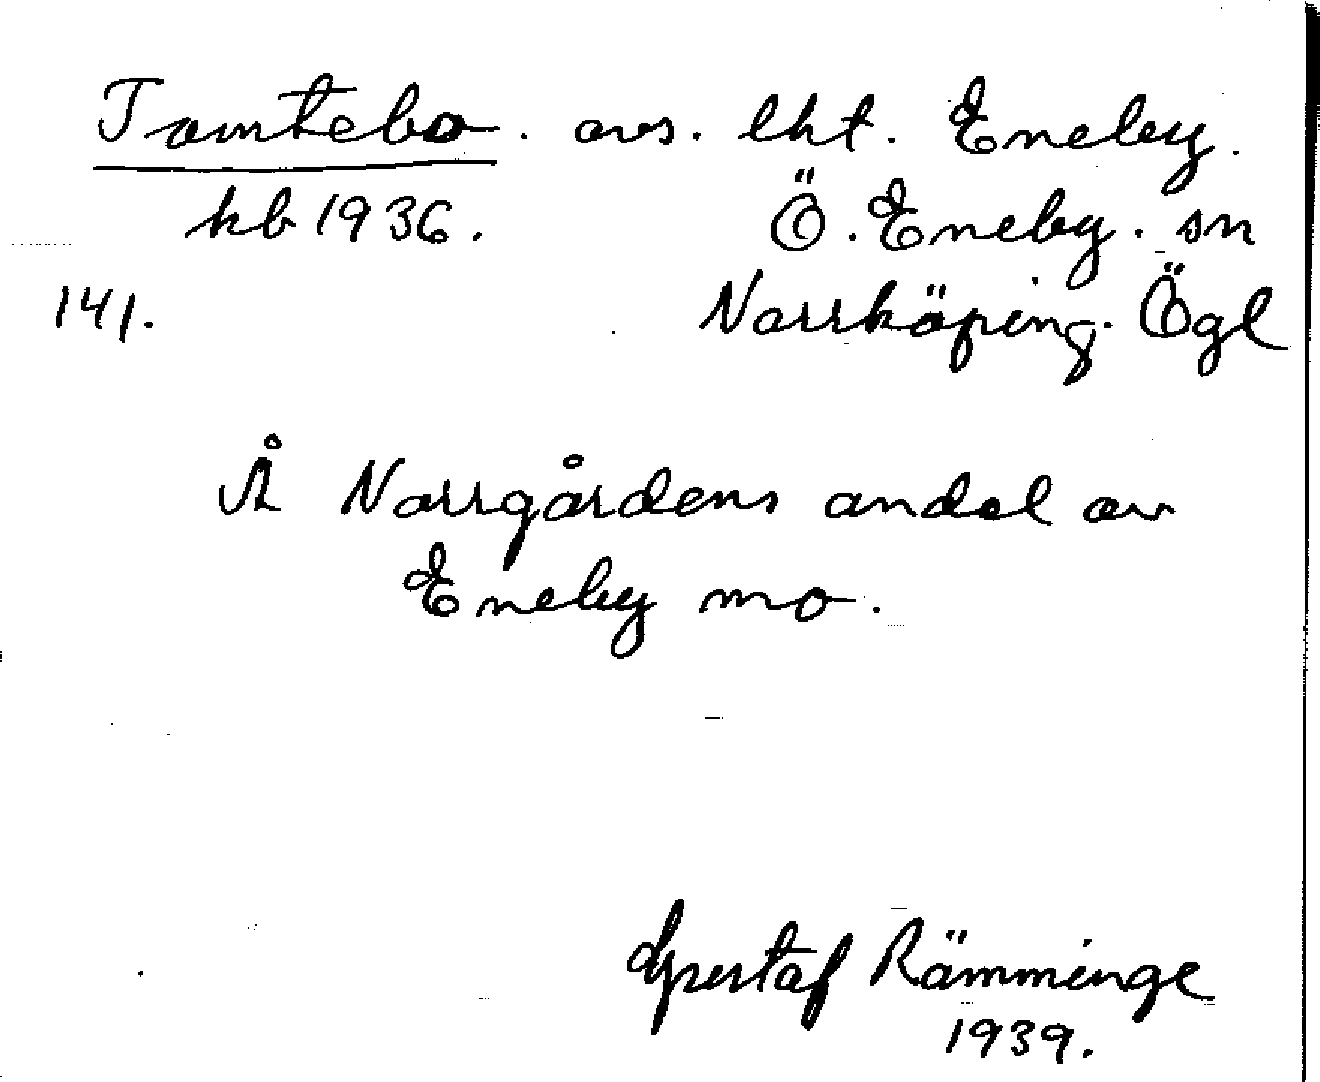 Tomtebo. avs. lht. Eneby.
kb 1936. Ö. Eneby. sn
141. Norrköping. Ögl
Å Norrgårdens andel av
Eneby mo.
Gustaf Rämminge
1939.